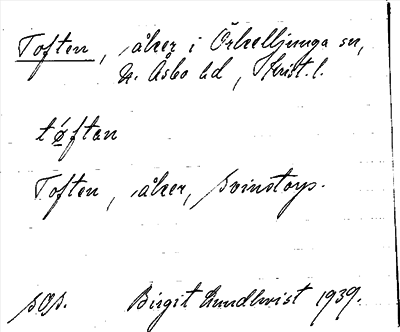 Toften, åker i Örkelljunga sn,
N. Åsbo hd, Krist. l.
tøftan
Toften, åker, Svinstorp.
Birgit Lundkvist 1939.